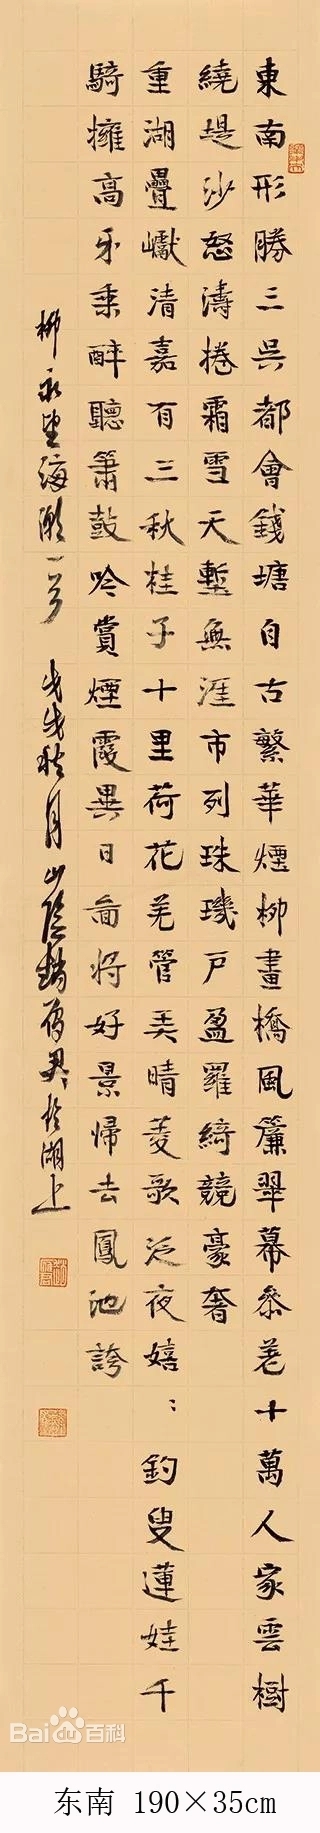 東南形勝三吳都會錢塘自古繁華煙柳畫橋風簾翠幕參差十萬人家雲樹
繞堤沙怒濤捲霜雪天塹無涯市列珠璣戶盈羅綺競豪奢
重湖疊巘清嘉有三秋桂子十里荷花羌管弄晴菱歌泛夜嬉〻釣叟蓮娃千
騎擁高牙乘醉聽簫鼓吟賞煙霞異日圖將好景歸去鳳池誇
柳永望海潮一首 戊戌秋月山陰趙雁君於湖上
Bai百科
东南 190×35cm